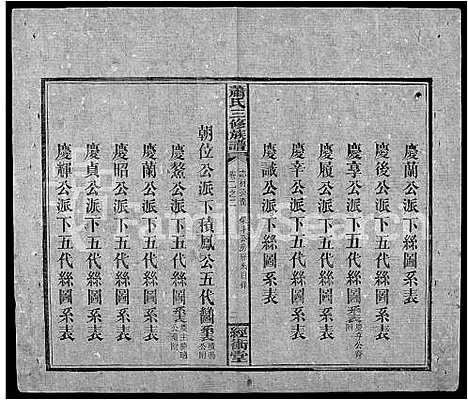 慶蘭公派下絲圖系表
慶後公派下五代絲圖系表
慶享公派下五代絲圖系表
慶履公派下五代絲圖系表
慶幸公派下五代絲圖系表
慶誠公派下絲圖系表
蕭氏三修族譜
卷二之二
經術堂
朝位公派下積鳳公五代齠系表
慶鰲公派下五代絲圖系表
慶蘭公派下五代絲圖系表
慶昭公派下五代絲圖系表
慶貞公派下五代絲圖系表
慶輝公派下五代絲圖系表
FamilySearch